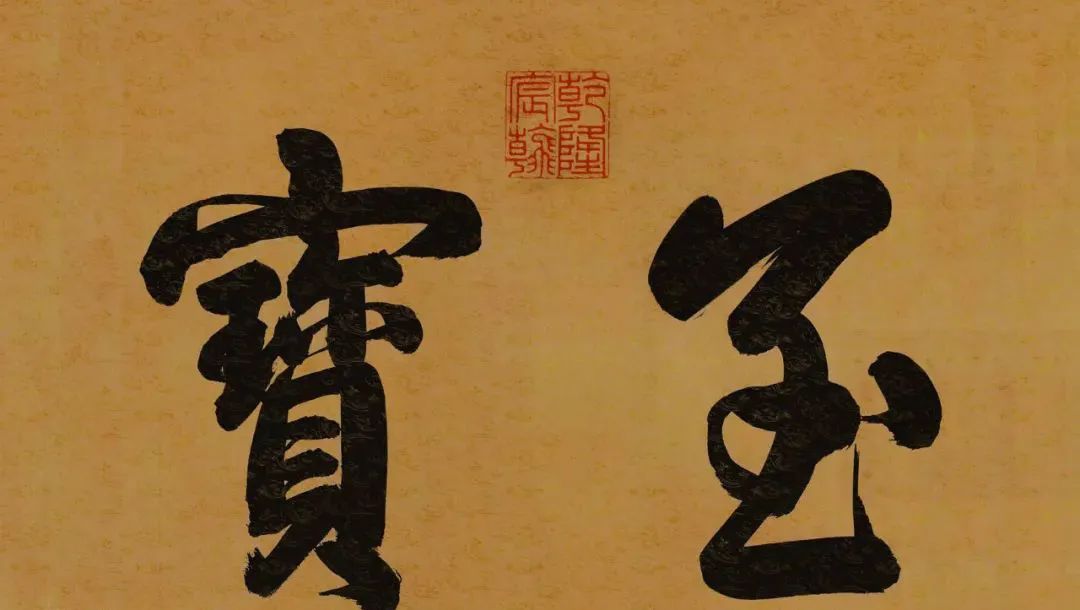 乾隆
宸翰
至寶